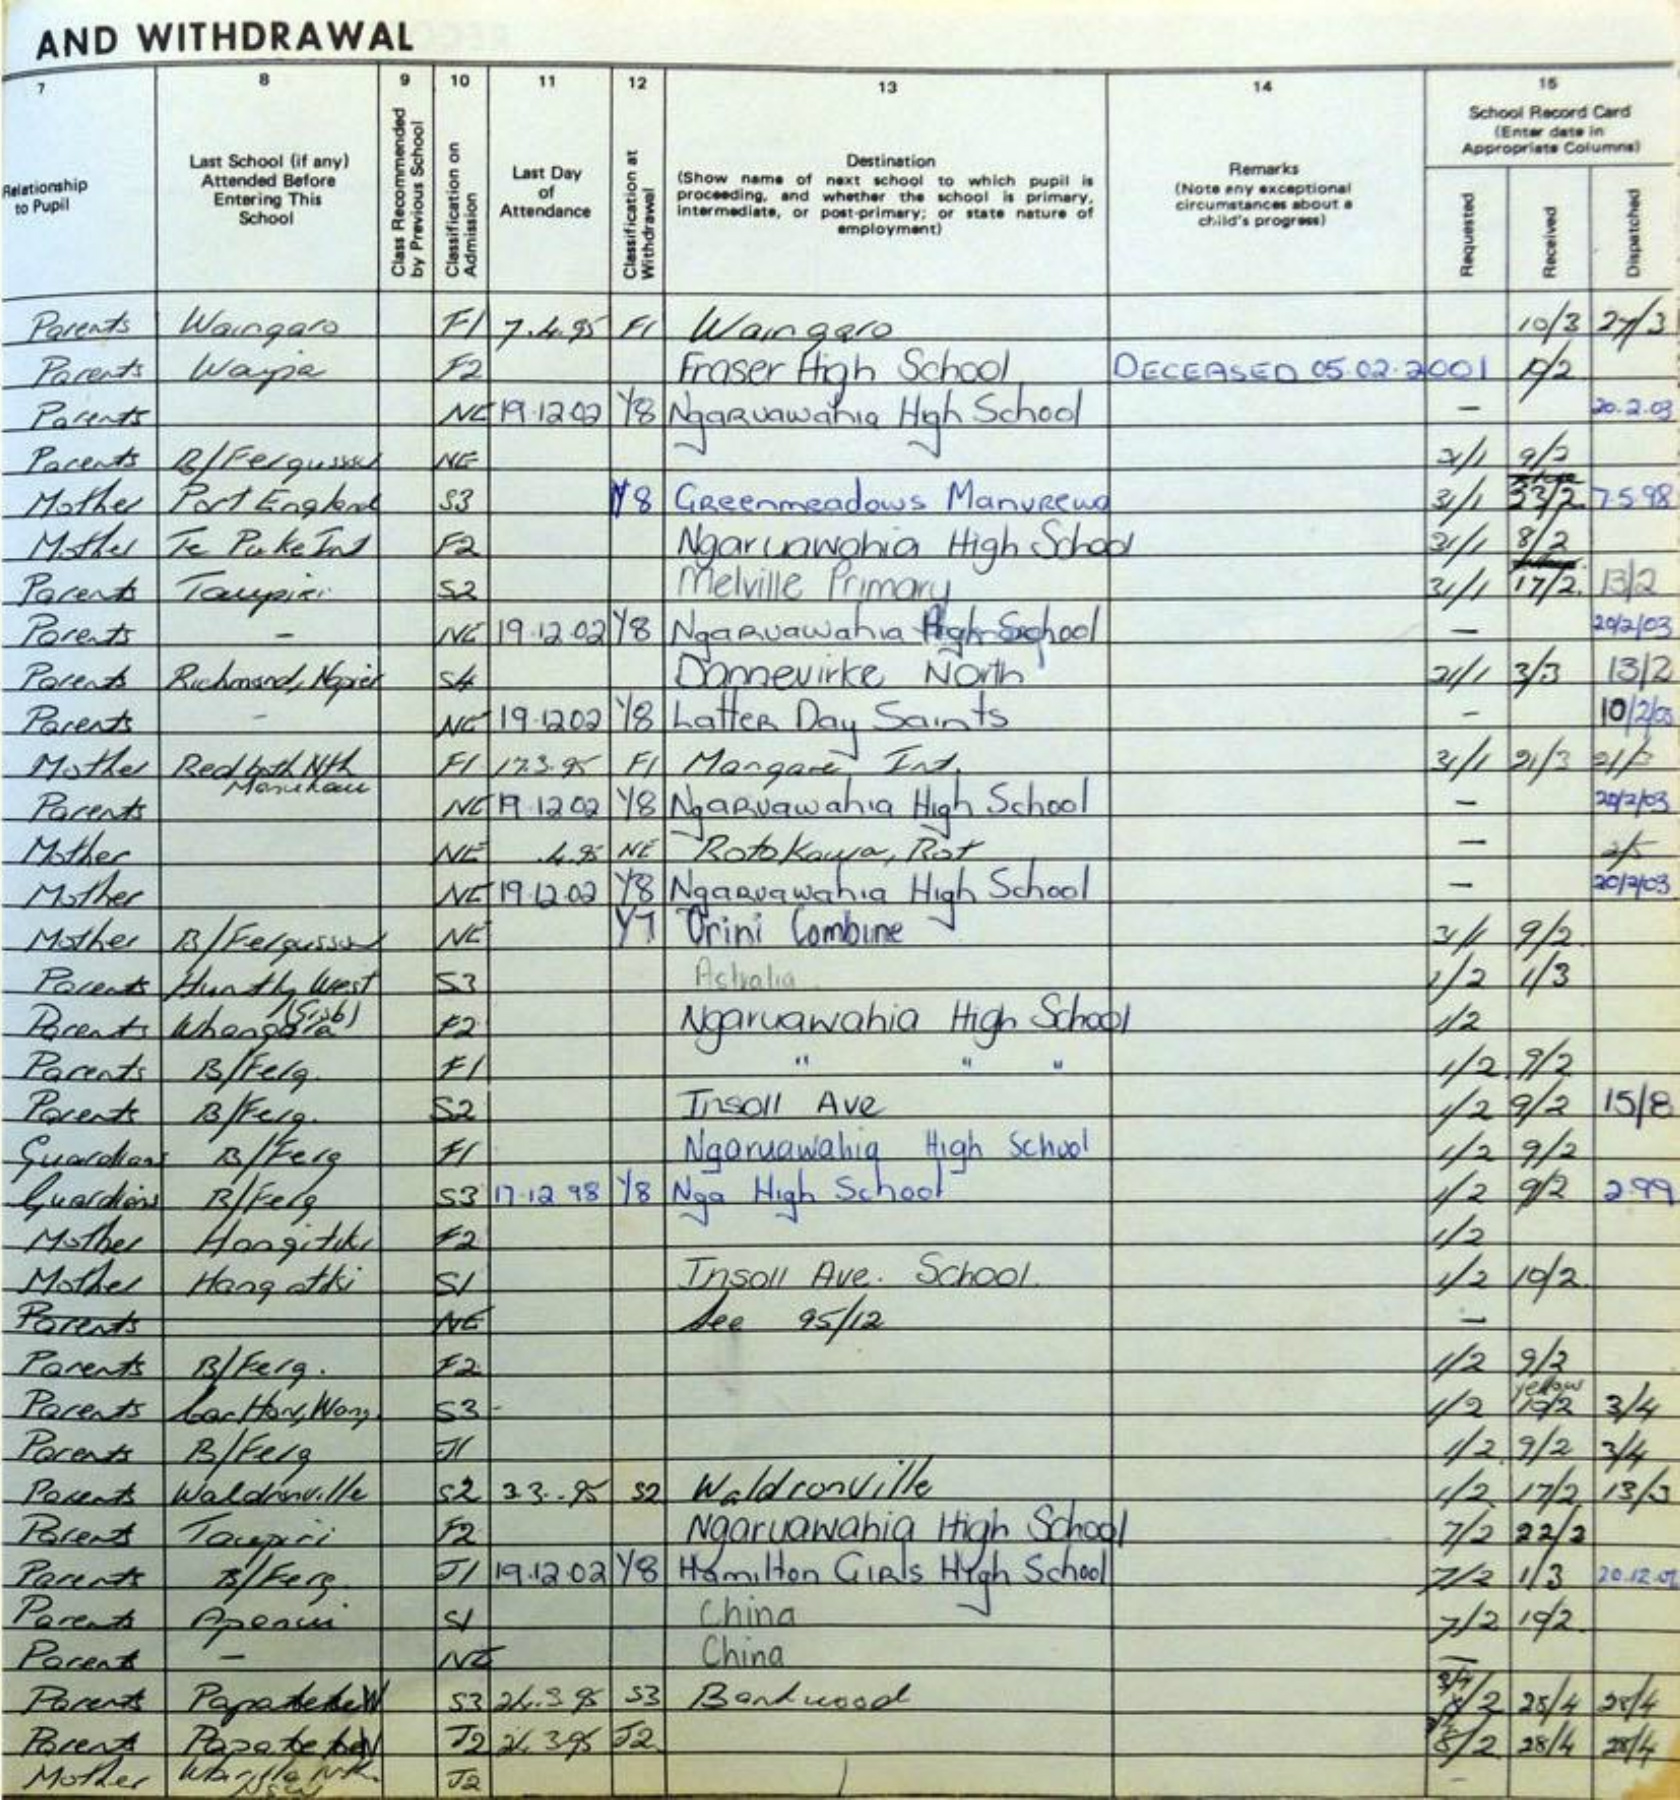 AND WITHDRAWAL
7 8 9 10 11 12 13 14 15
Relationship to Pupil
Last School (if any) Attended Before Entering This School
Class Recommended by Previous School
Classification on Admission
Last Day of Attendance
Classification at Withdrawal
Destination
(Show name of next school to which pupil is proceeding, and whether the school is primary, intermediate, or post-primary; or state nature of employment)
Remarks
(Note any exceptional circumstances about a child's progress)
School Record Card
(Enter date in Appropriate Columns)
Requested
Received
Dispatched
Parents Waingaro F1 7.4.95 F1 Waingaro 10/3 27/3
Parents Waipa F2 Fraser High School DECEASED 05.02.2001
Parents NE 19.12.02 Y8 Ngaruawahia High School - 20.2.03
Parents B/Fergusson NE 31/1 9/2
Mother Port England S3 Y8 Greenmeadows Manurewa 31/1 23/2 7.5.98
Mother Te Puke Int F2 Ngaruawahia High School 31/1 8/2
Parents Taupiri S2 Melville Primary 31/1 17/2. 13/2
Parents - NE 19.12.02 Y8 Ngaruawahia High School - 20/2/03
Parents Richmond, Napier S4 Dannevirke North 31/1 3/3 13/2
Parents - NE 19.12.02 Y8 Latter Day Saints - 10/2/03
Mother Nth Manukau F1 17.3.95 F1 Mangare Int. 31/1 21/3
Parents NE 19.12.02 Y8 Ngaruawahia High School - 20/2/03
Mother NE .4.95 NE Rotokawa, Rot - 2/5
Mother NE 19.12.02 Y8 Ngaruawahia High School - 20/2/03
Mother B/Fergusson NE Y7 Orini Combine 31/1 9/2.
Parents Huntly West S3 Astralia 1/2 1/3
Parents Whangara (Gisb) F2 Ngaruawahia High School 1/2
Parents B/Ferg. F1 " " " 1/2 9/2
Parents B/Ferg. S2 Insoll Ave 1/2 9/2 15/8
Guardians B/Ferg F1 Ngaruawahia High School 1/2 9/2
Guardians B/Ferg S3 17.12.98 Y8 Nga High School 1/2 9/2 2.99
Mother Hangitiki F2 1/2
Mother Hangatiki S1 Insoll Ave. School. 1/2 10/2.
Parents NE See 95/12 -
Parents B/Ferg. F2 1/2 9/2
Parents S3 1/2 yellow 10/2 3/4
Parents B/Ferg J1 1/2 9/2 3/4
Parents Waldronville S2 3.3.95 S2 Waldronville 1/2 17/2 13/3
Parents Taupiri F2 Ngaruawahia High School 7/2 22/2
Parents B/Ferg. J1 19.12.02 Y8 Hamilton Girls High School 7/2 1/3 20.12.02
Parents Apanui S1 China 7/2
Parents - NE China -
Parents S3 24.3.95 S3 Bankwood 8/2 28/4 28/4
Parents J2 24.3.95 J2 8/2 28/4 28/4
Mother J2 -